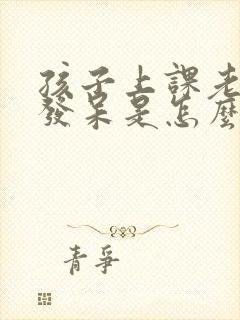 孩子上課老
發呆是怎麼
青爭